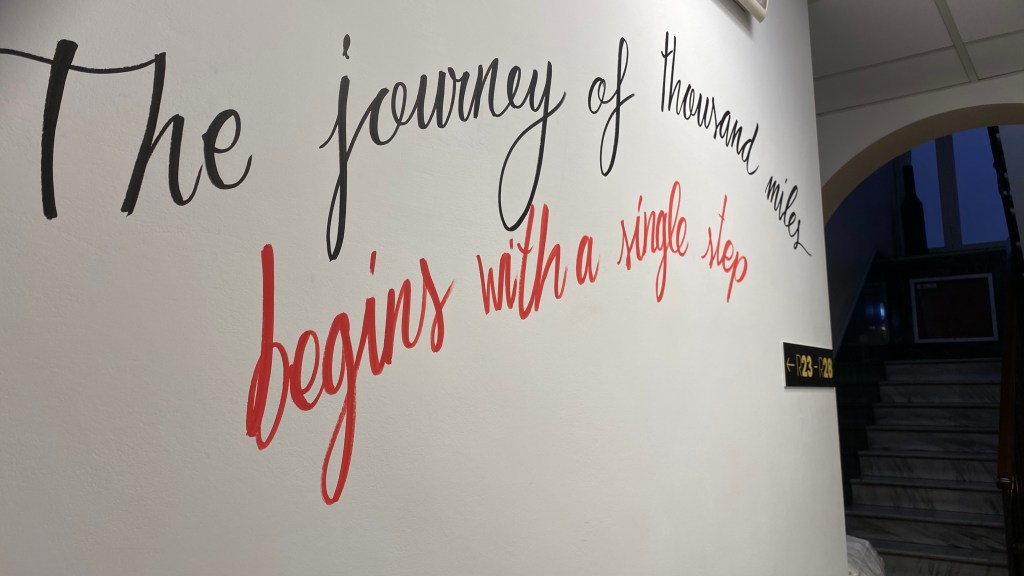 The journey of thousand miles
begins with a single step
← R23-R28